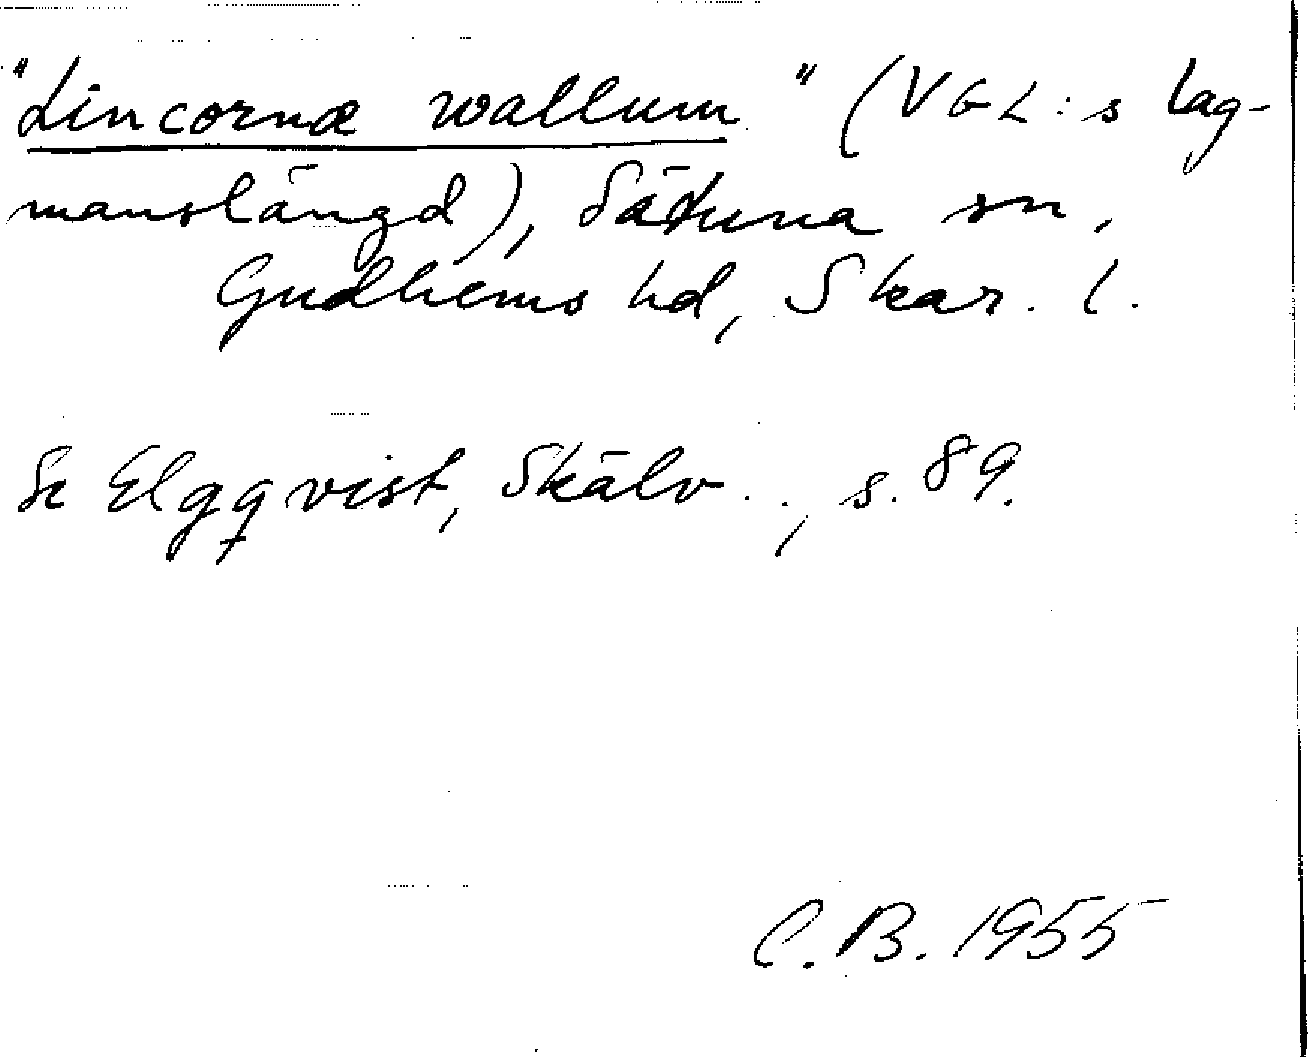 "Lincornæ wallum" (VGL:s lag-
manslängd), Sätuna sn,
Gudhems hd, Skar. l.
Se Elgqvist, Skälv..., s. 89.
C.B. 1955